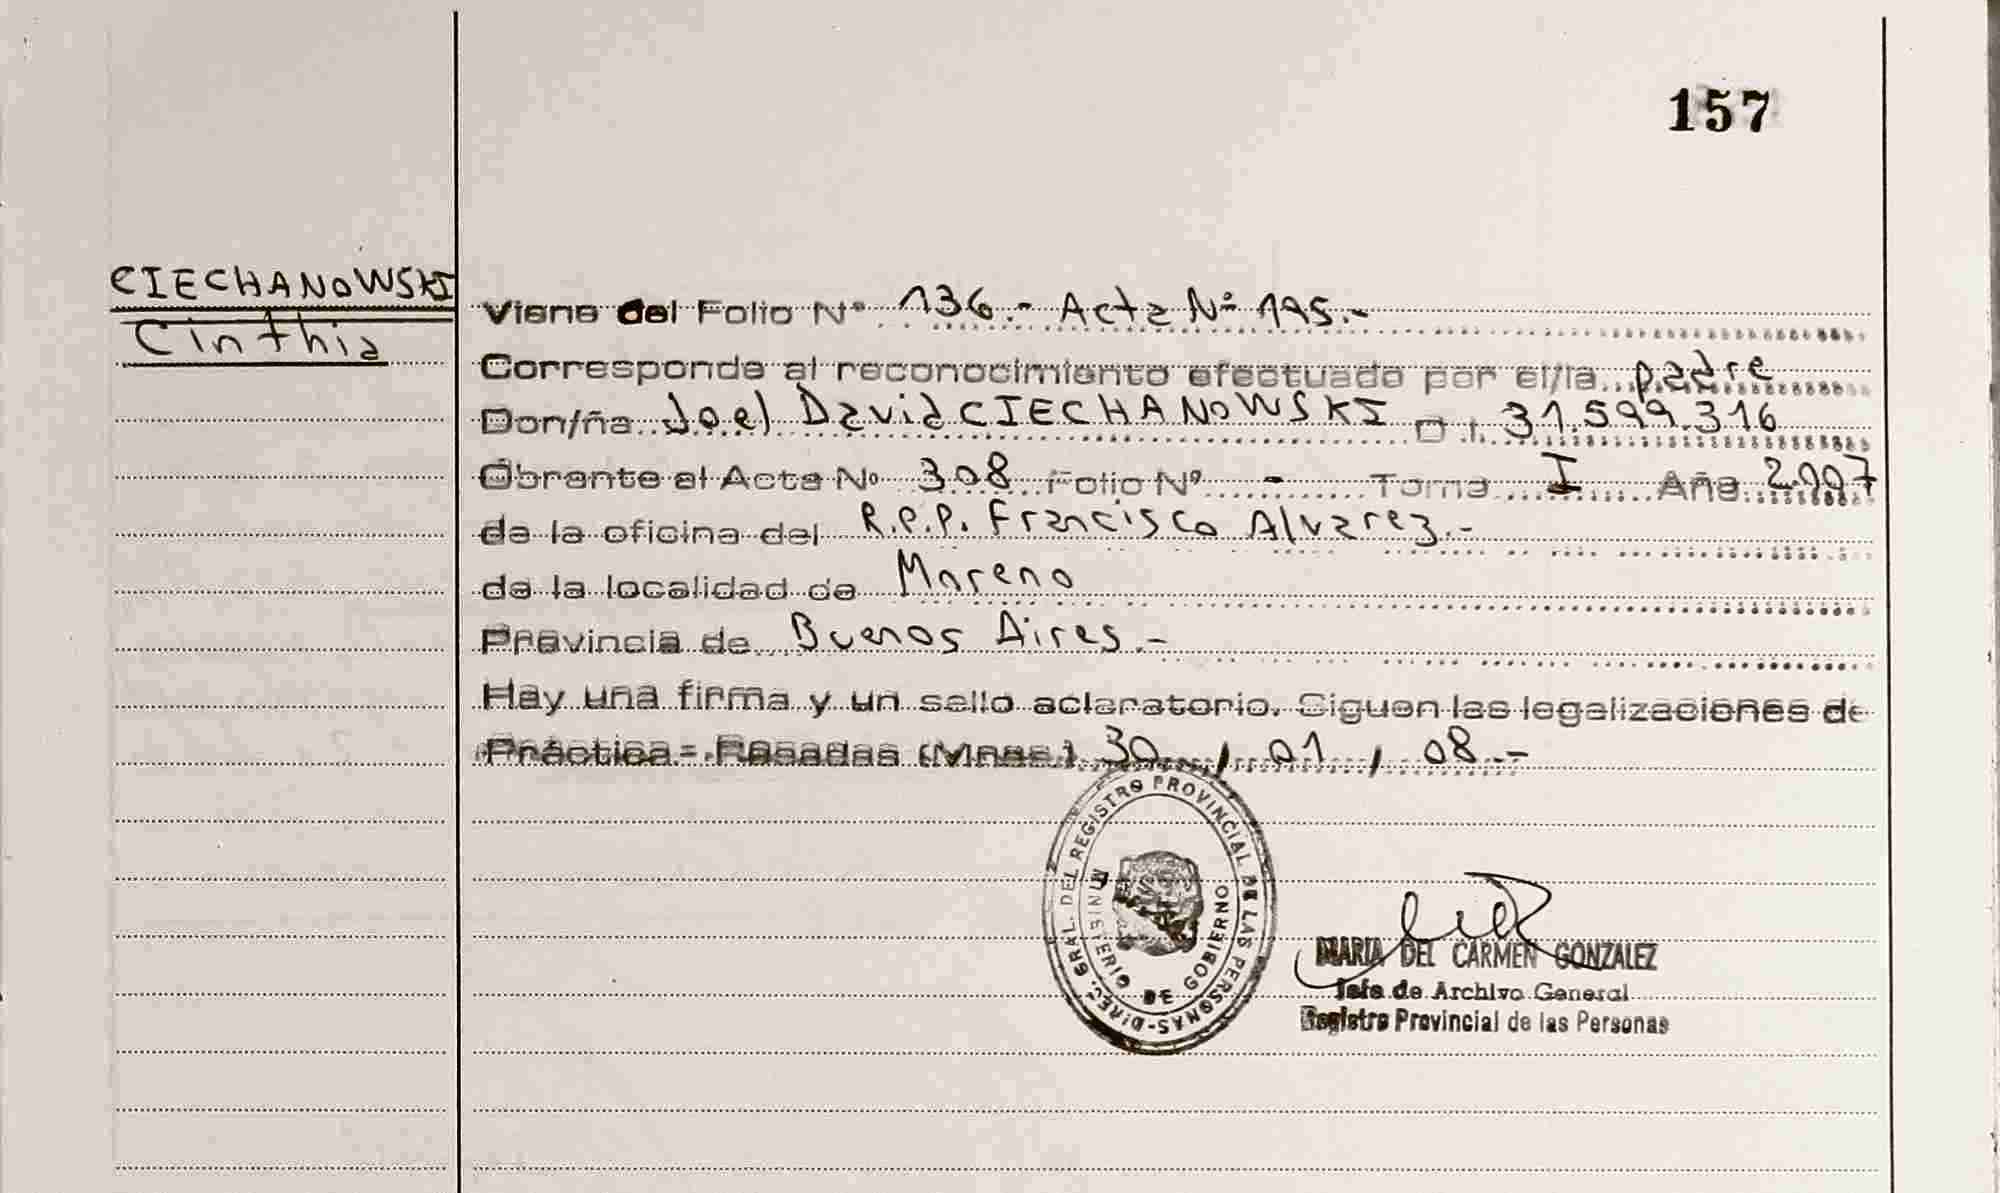 157
CIECHANOWSKI
Cinthia
Viene del Folio Nº 136.- Acta Nº 195.-
Corresponde al reconocimiento efectuado por el/la padre
Don/ña Joel David CIECHANOWSKI D.I. 31.599.316
Obrante al Acta No 308 Folio Nº - Tomo I Año 2.007
de la oficina del R.P.P. Francisco Alvarez.-
de la localidad de Moreno
Provincia de Buenos Aires.-
Hay una firma y un sello aclaratorio. Siguen las legalizaciones de
Práctica - Posadas (Mnes.) 30 / 01 / 08.-
DIREC. GRAL. DEL REGISTRO PROVINCIAL DE LAS PERSONAS-
MINISTERIO DE GOBIERNO
MARIA DEL CARMEN GONZALEZ
Jefe de Archivo General
Registro Provincial de las Personas